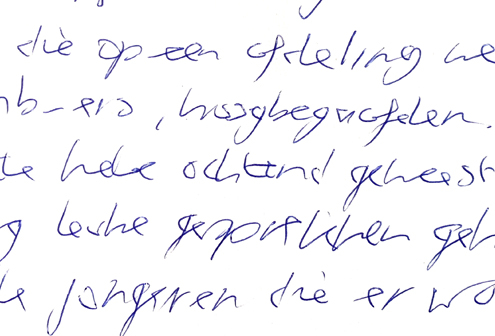 die op een afdeling we
nb-ers, hoogbegaafden.
te hele ochtend geheerst
g leuke gesprekken geh
le jongeren die er wo